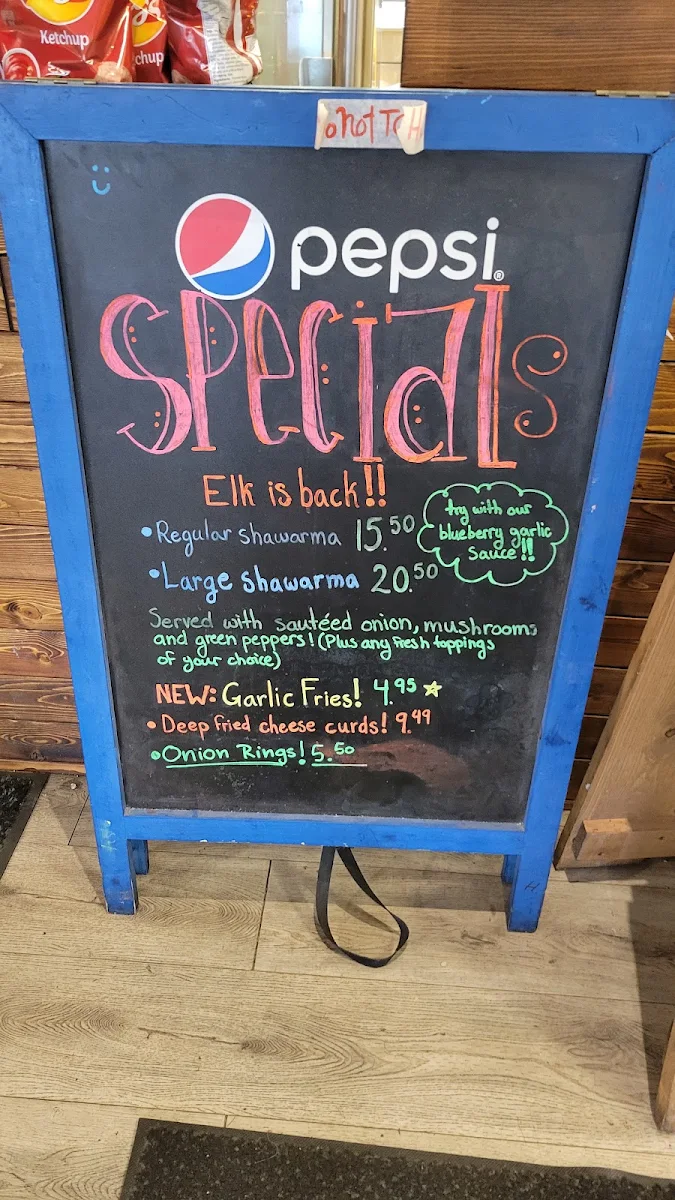 Ketchup
chup
o not T H
pepsi
Specials
Elk is back!!
• Regular shawarma 15.50
• Large shawarma 20.50
try with our
blueberry garlic
sauce!!
Served with sautéed onion, mushrooms
and green peppers! (Plus any fresh toppings
of your choice)
NEW: Garlic Fries! 4.95 ☆
• Deep fried cheese curds! 9.49
• Onion Rings! 5.50